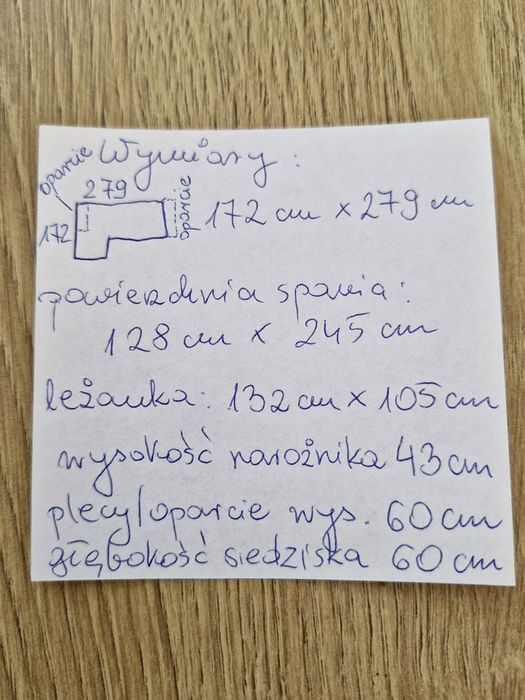 Wymiary:
oparcie
279
172
oparcie
172 cm x 279 cm
powierzchnia spania:
128 cm x 245 cm
leżanka: 132 cm x 105 cm
wysokość narożnika 43 cm
plecy/oparcie wys. 60 cm
głębokość siedziska 60 cm